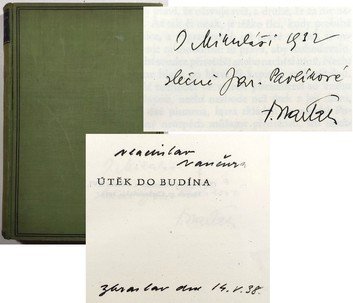 O Mikuláši 1932
slečně Jar. Pavlíkové
F. Bartoš
Vladislav
Vančura
ÚTĚK DO BUDÍNA
Zbraslav dne 14. V. 38.